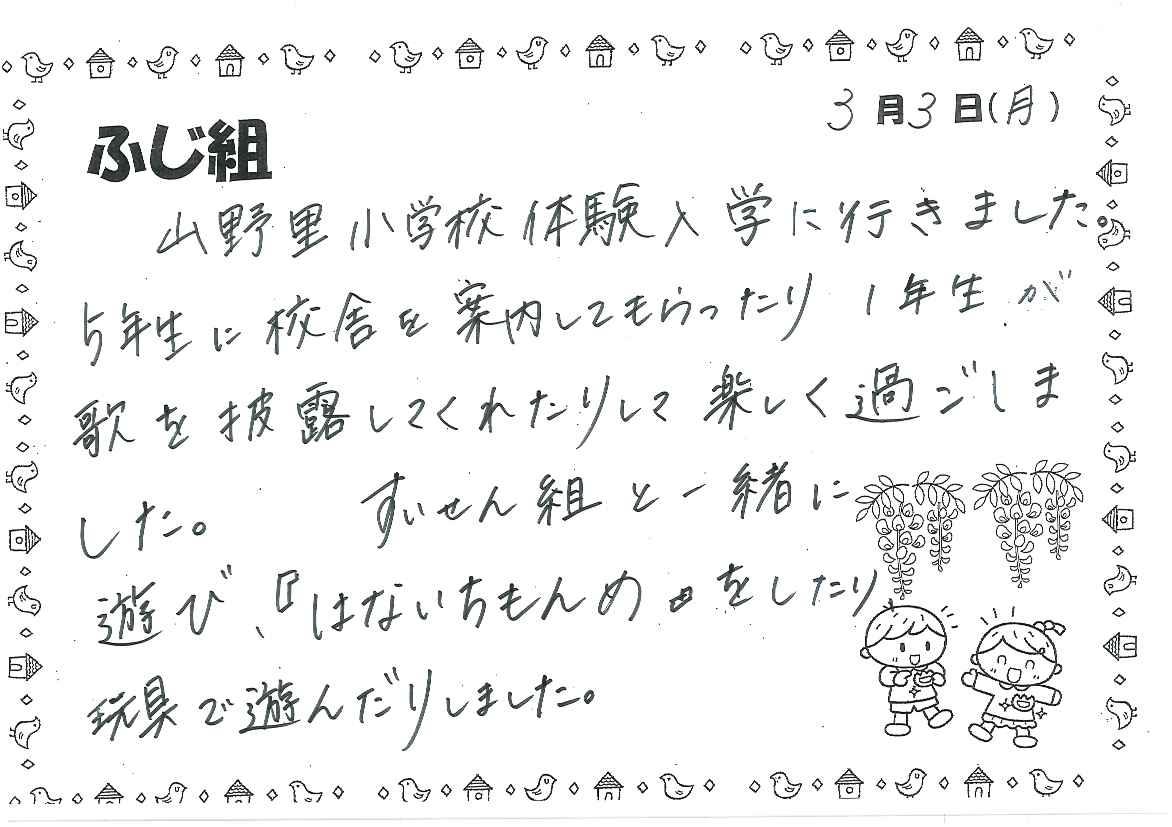 3月3日(月)
ふじ組
山野里小学校体験入学に行きました。
5年生に校舎を案内してもらったり 1年生が
歌を披露してくれたりして楽しく過ごしま
した。 すいせん組と一緒に
遊び、『はないちもんめ』をしたり、
玩具で遊んだりしました。